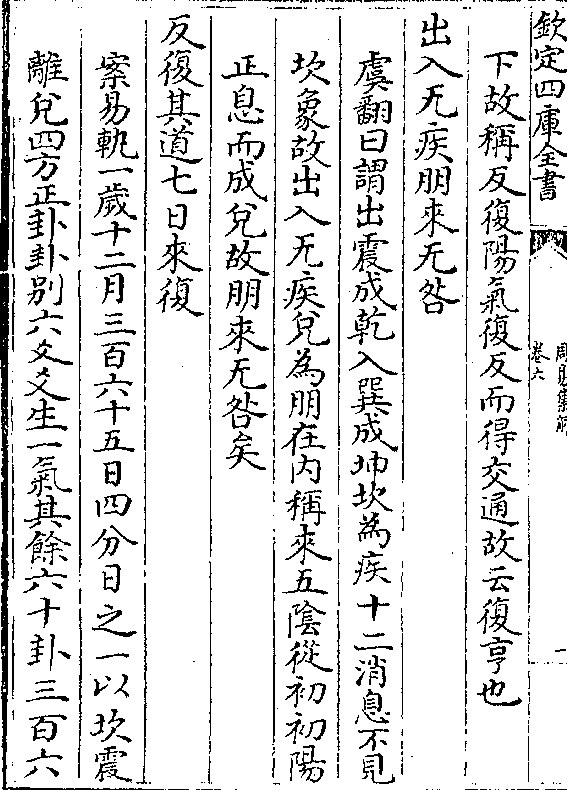 欽定四庫全書
周易集解
卷六
一
下故稱反復陽氣復反而得交通故云復亨也
出入无疾朋來无咎
虞翻曰謂出震成乾入巽成坤坎為疾十二消息不見
坎象故出入无疾兌為朋在内稱來五陰從初初陽
正息而成兌故朋來无咎矣
反復其道七日來復
案易軌一歲十二月三百六十五日四分日之一以坎震
離兌四方正卦卦别六爻爻生一氣其餘六十卦三百六